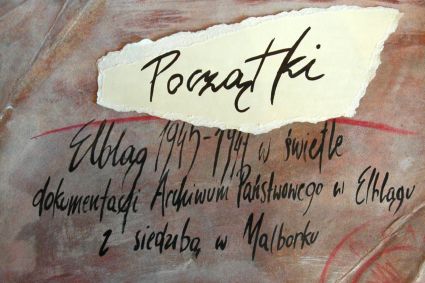 Początki
Elbląg 1945-1947 w świetle
dokumentacji Archiwum Państwowego w Elblągu
z siedzibą w Malborku